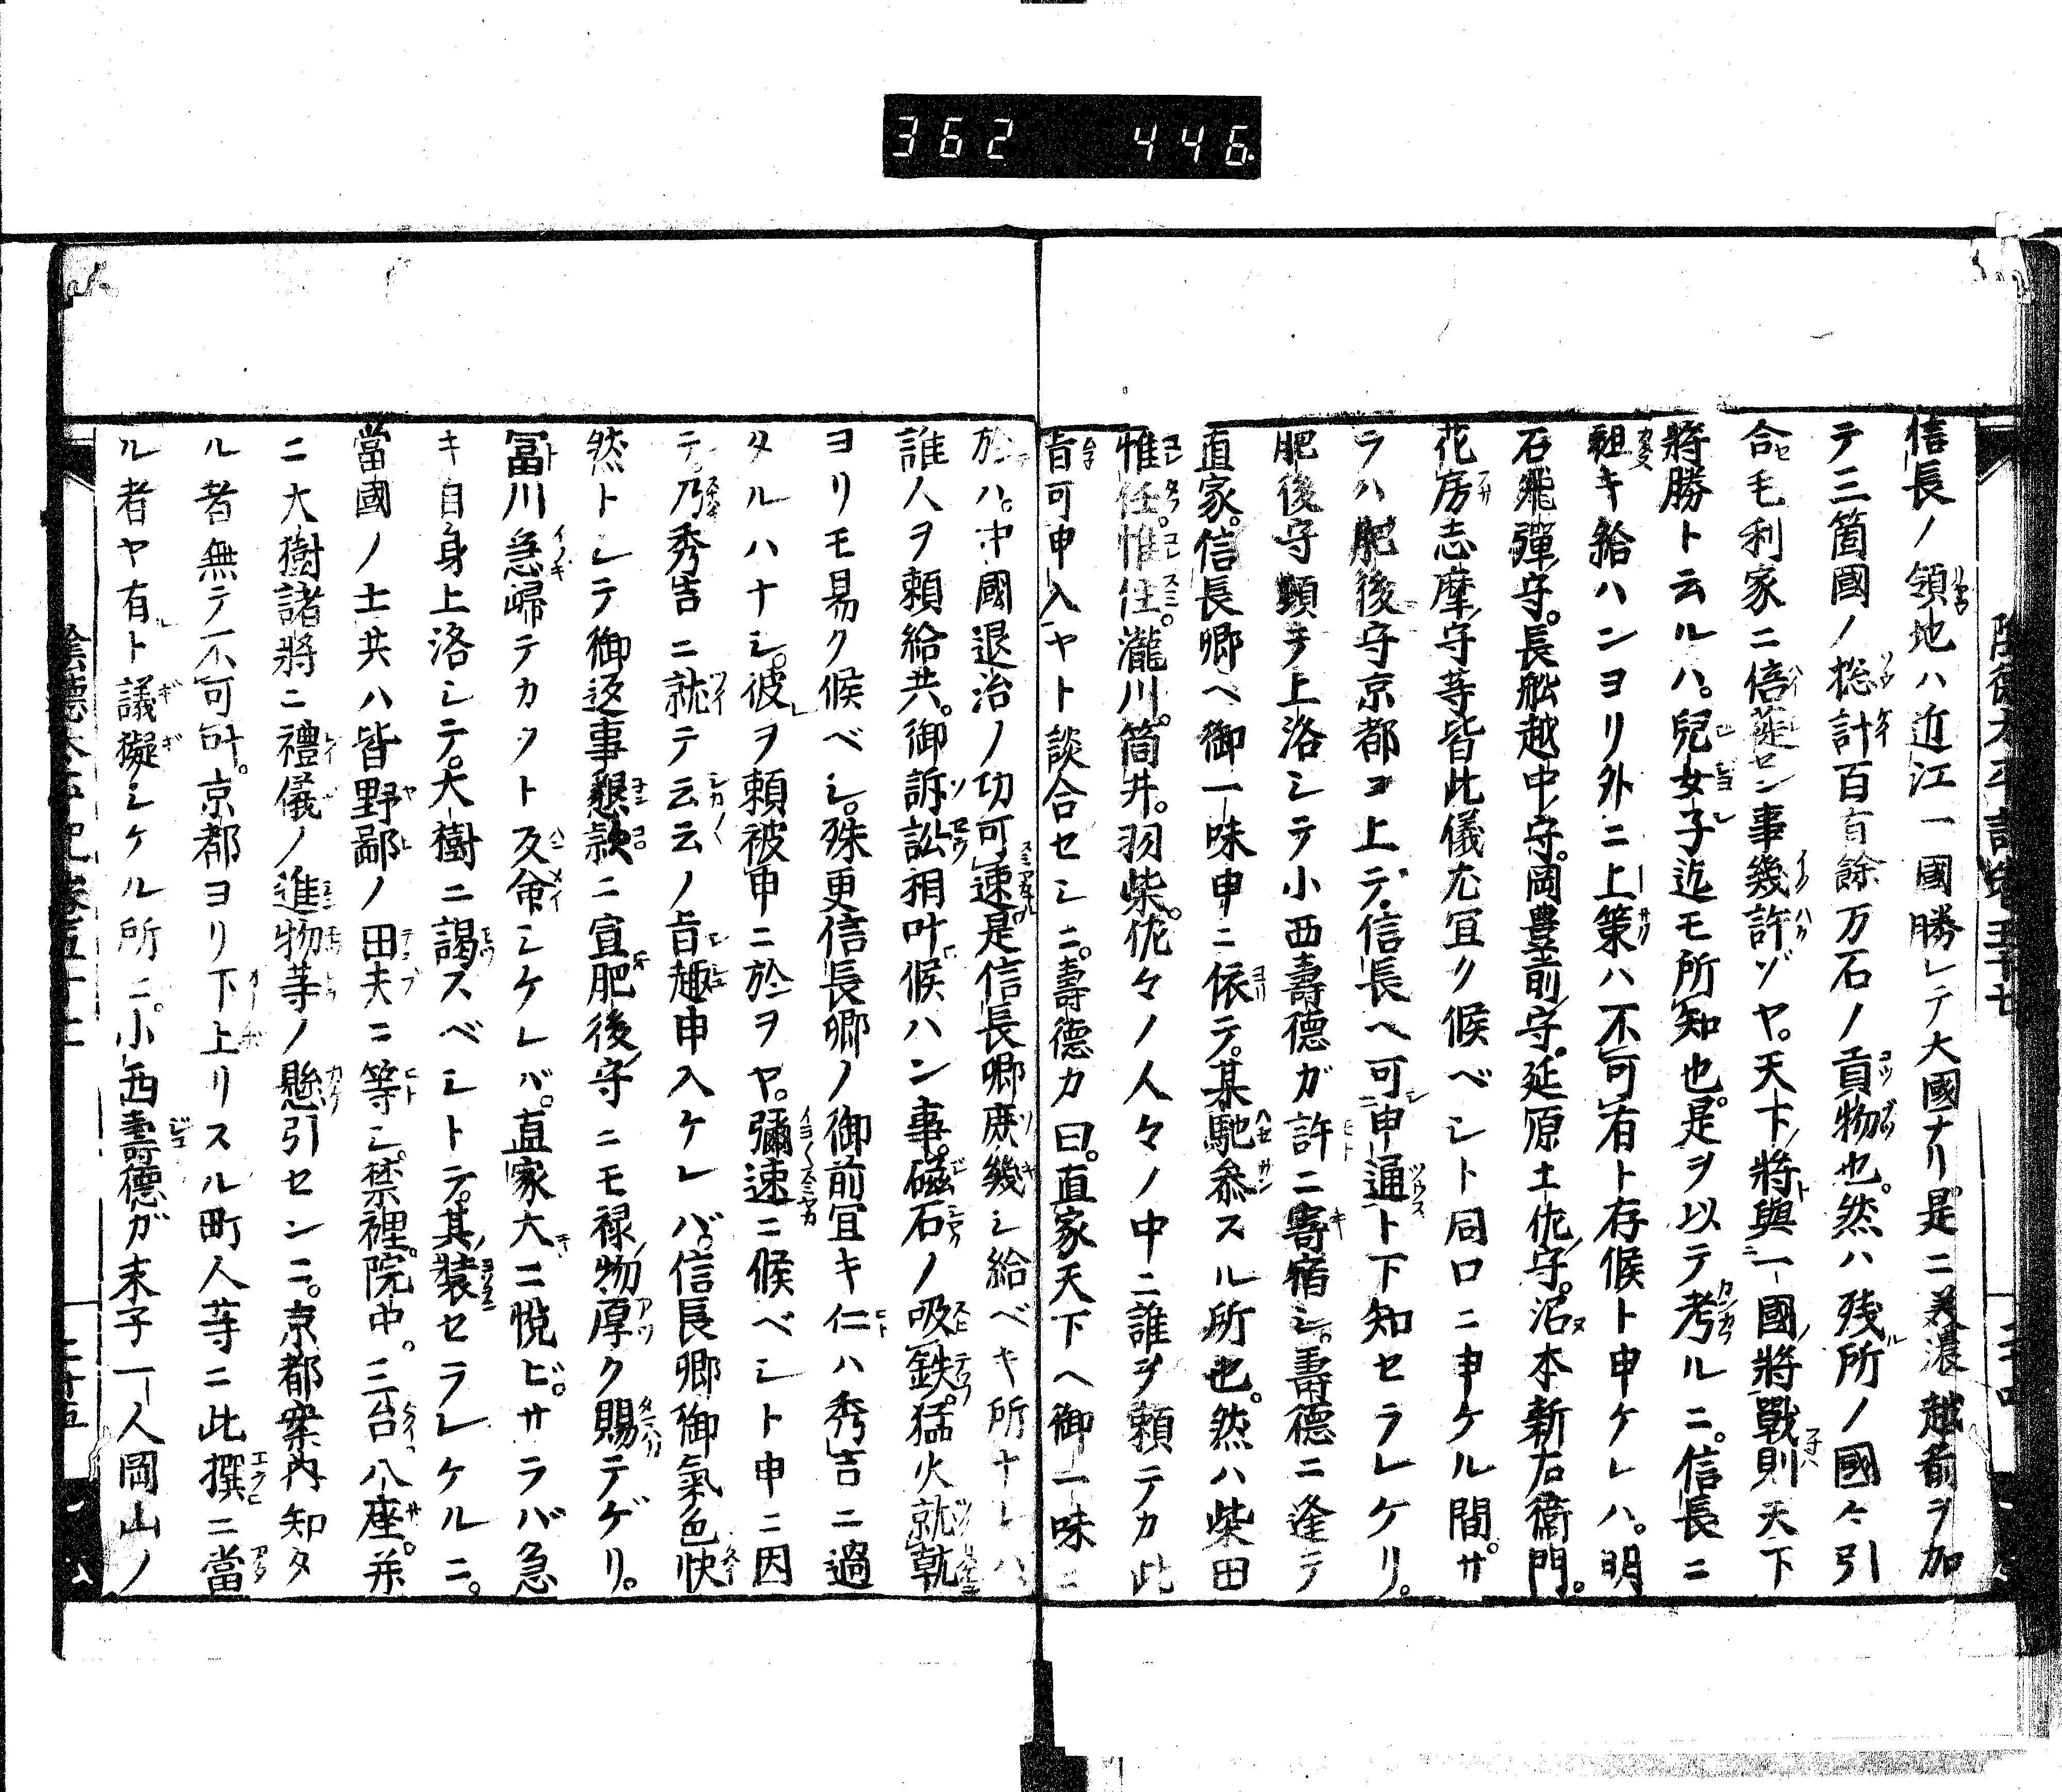 362 446
信長ノ領地ハ近江一國勝レテ大國ナリ是ニ美濃越前ヲ加
テ三箇國ノ惣計百有餘万石ノ貢物也。然ハ残所ノ國々引
合毛利家ニ倍蓰セン事幾許ゾヤ。天下ノ將與一國ノ將戰則天下
將勝ト云ルハ。兒女子迄モ所知也。是ヲ以テ考ルニ。信長ニ
組キ給ハンヨリ外ニ上策ハ不可有ト存候ト申ケレハ。明
石飛彈守。長舩越中守。岡豊前守。延原土佐守。沼本新右衛門。
花房志摩守等皆此儀尤宜ク候ベシト同口ニ申ケル間。サ
ラハ肥後守京都ヨ上テ。信長ヘ可申通ト下知セラレケリ。
肥後守頓テ上洛シテ小西壽德ガ許ニ寄宿シ。壽德ニ逢テ
直家。信長卿ヘ御一味申ニ依テ。某馳參スル所也。然ハ柴田
惟任。惟住。瀧川。筒井。羽柴。佐々ノ人々ノ中ニ誰ヲ頼テカ此
旨可申入ヤト談合セシニ。壽德カ曰。直家天下ヘ御一味ニ
於ハ。中國退治ノ功可速是信長卿庶幾シ給ベキ所ナレハ
誰人ヲ頼給共。御訴訟相叶候ハン事。磁石ノ吸鉄。猛火就乾
ヨリモ易ク候ベシ。殊更信長卿ノ御前宜キ仁ハ秀吉ニ過
タルハナシ。彼ヲ頼被申ニ於ヲヤ。彌速ニ候ベシト申ニ因
テ。乃秀吉ニ就テ云云ノ旨趣申入ケレバ。信長卿御氣色快
然トシテ御返事懇款ニ宜肥後守ニモ禄物厚ク賜テゲリ。
冨川急歸テカクト反命シケレバ。直家大ニ悦ビ。サラバ急
キ自身上洛シテ。大樹ニ謁スベシトテ。其装セラレケルニ。
當國ノ士共ハ皆野鄙ノ田夫ニ等シ。禁裡。院中。三台八座。并
ニ大樹諸將ニ禮儀ノ進物等ノ懸引センニ。京都案内知タ
ル者無テ不可叶。京都ヨリ下上リスル町人等ニ此撰ニ當
ル者ヤ有ト議擬シケル所ニ。小西壽德ガ末子一人岡山ノ